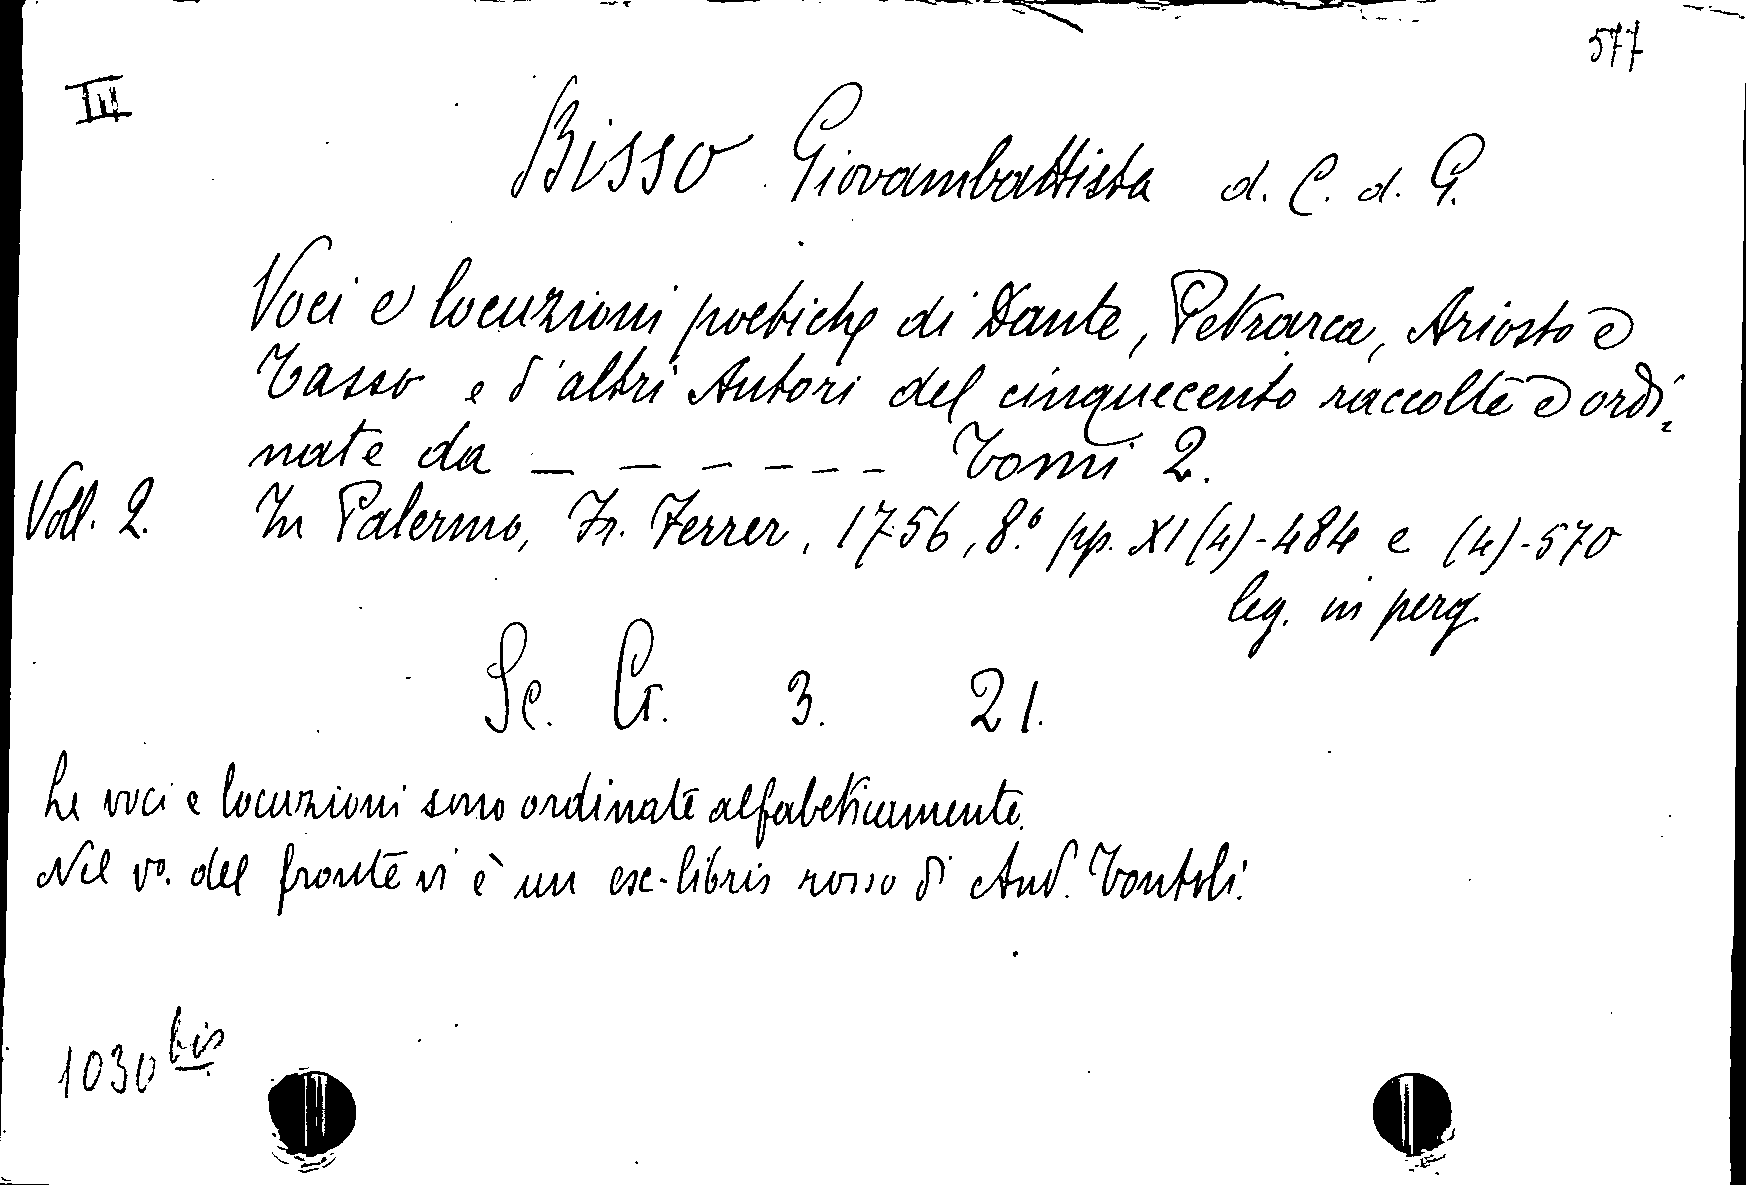 577
III
Bisso Giovambattista d. C. d. G.
Voci e locuzioni poetiche di Dante, Petrarca, Ariosto e
Tasso e d'altri Autori del cinquecento raccolte e ordi-
nate da _ _ _ _ _ _ _ Tomi 2.
Voll. 2. In Palermo, Fr. Ferrer, 1756, 8.° pp. XI (4)-484 e (4)-570
leg. in perg.
Sc. Cr. 3. 21.
Le voci e locuzioni sono ordinate alfabeticamente.
Nel vo. del fronte vi è un ex-libris rosso di And. Tontoli.
1030 bis